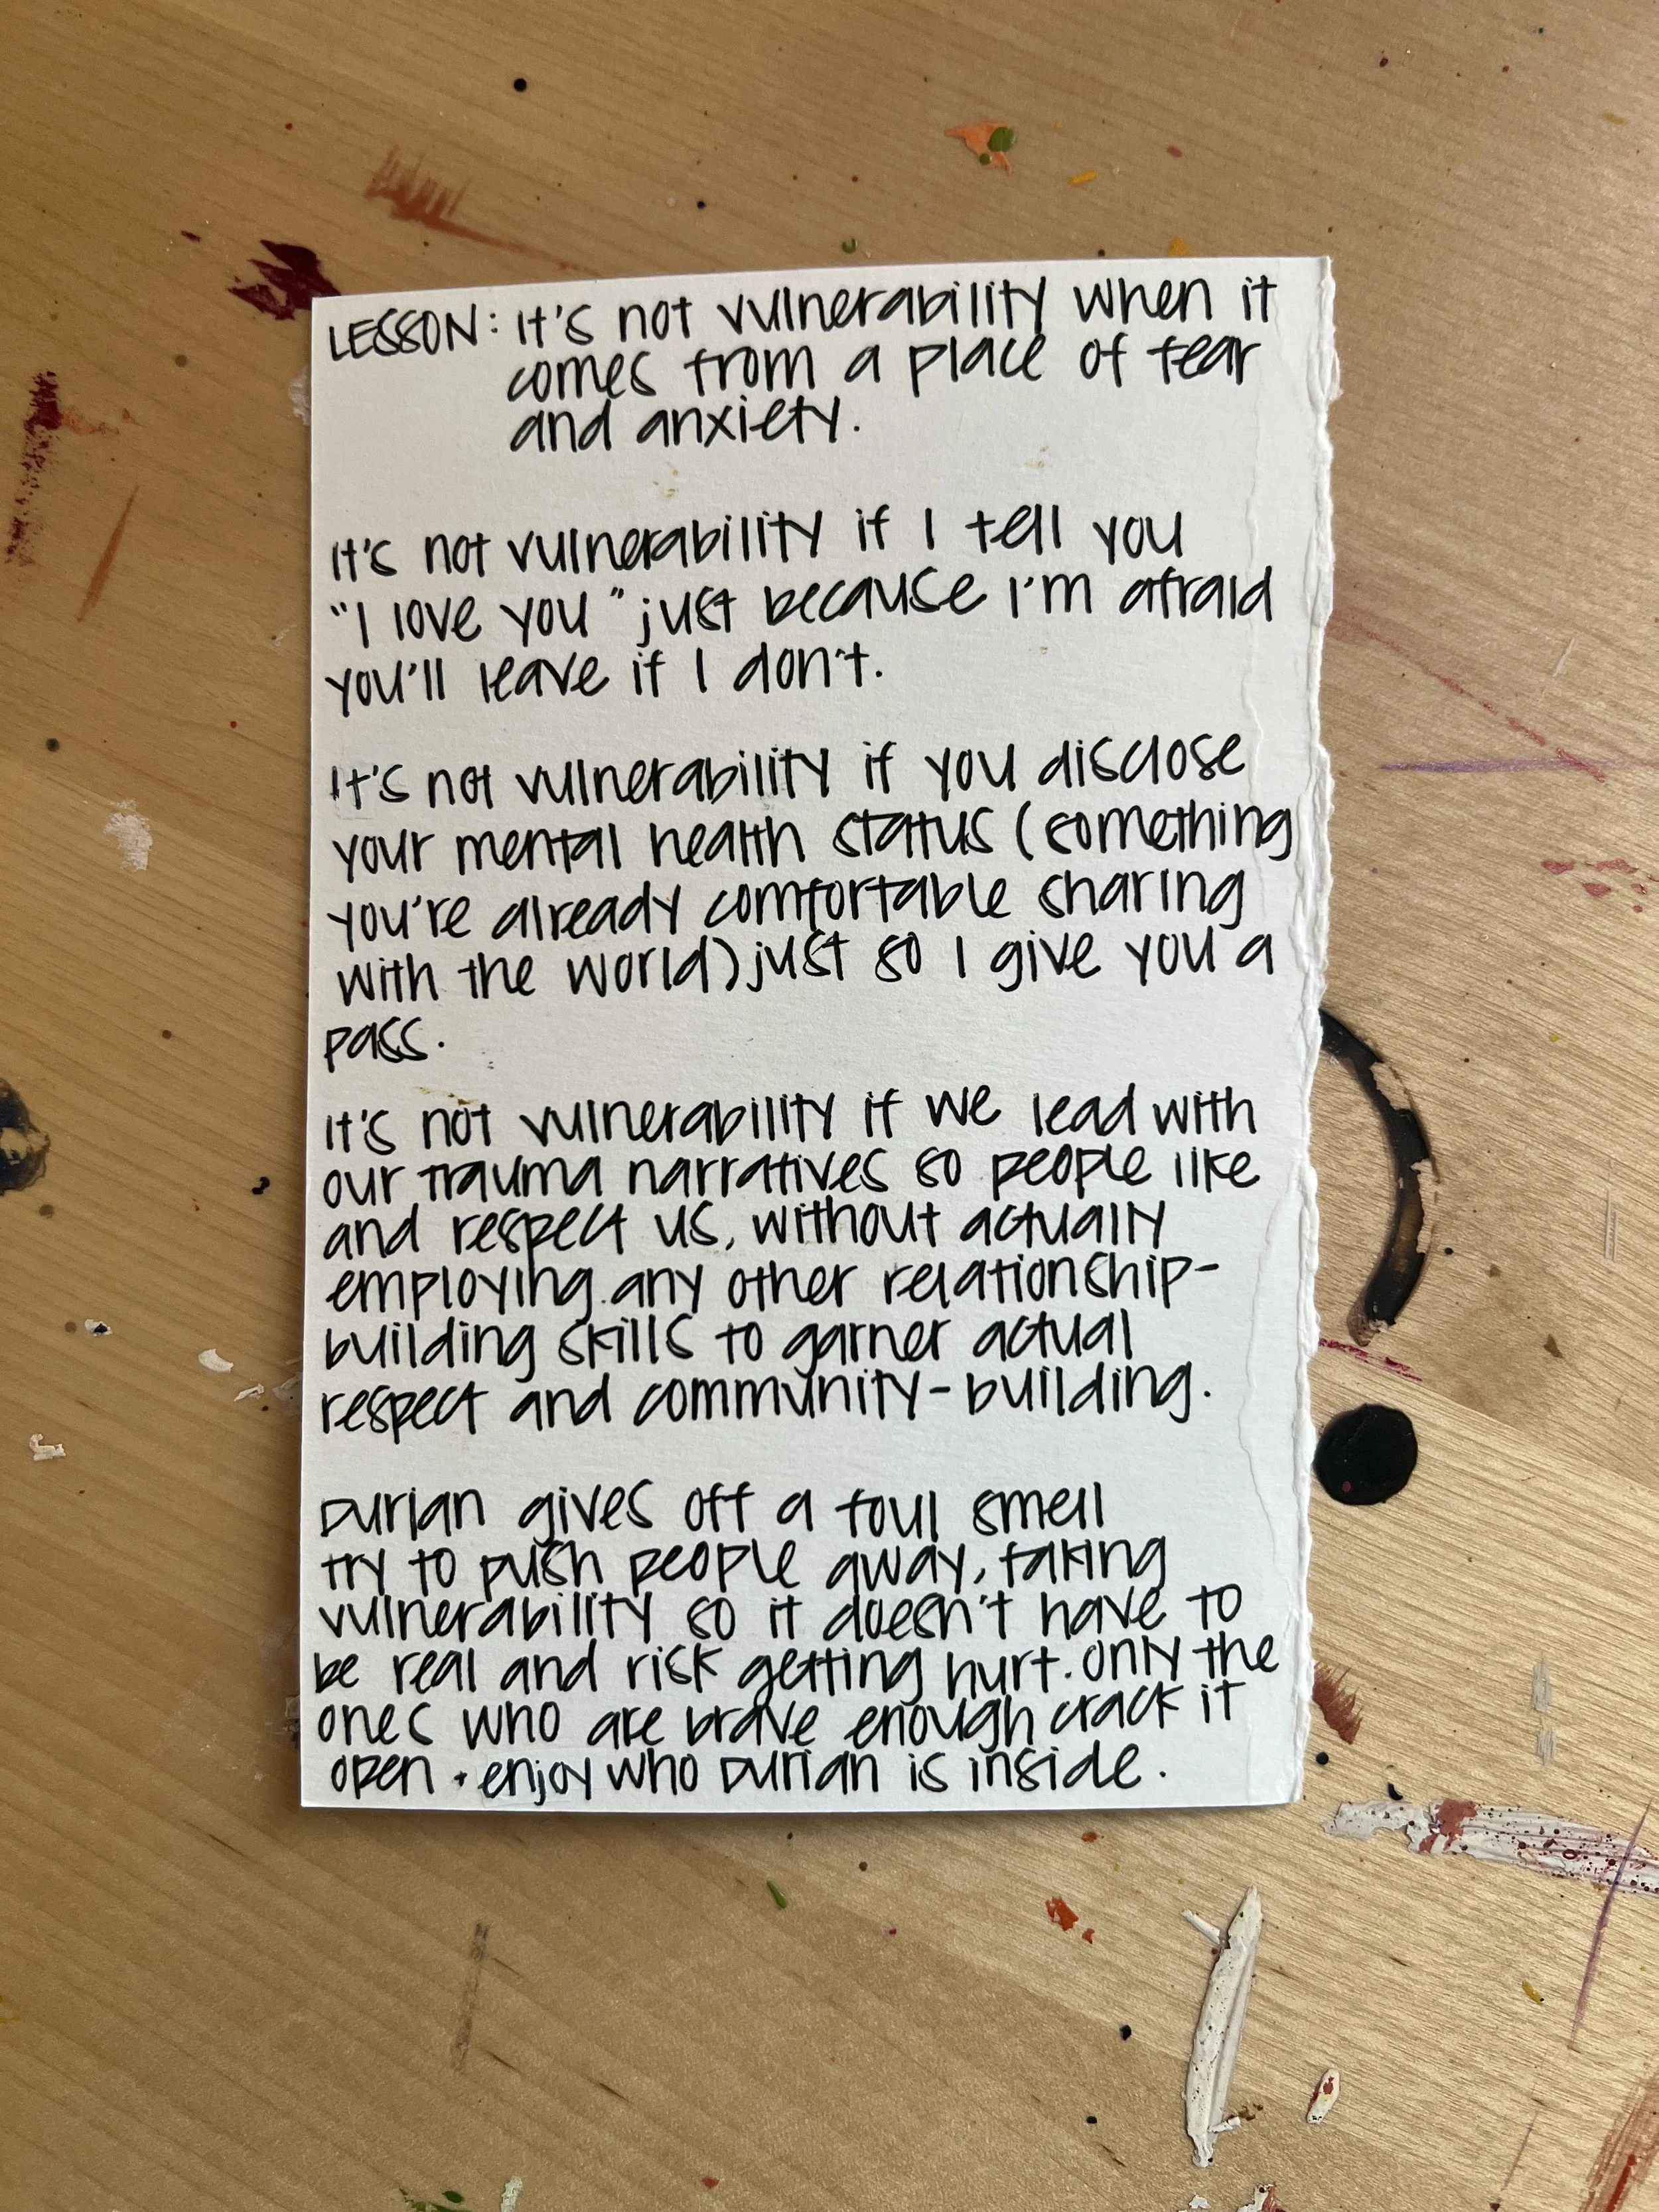 LESSON: It's not vulnerability when it
comes from a place of fear
and anxiety.
It's not vulnerability if I tell you
"I love you" just because I'm afraid
you'll leave if I don't.
It's not vulnerability if you disclose
your mental health status (something
you're already comfortable sharing
with the world) just so I give you a
pass.
It's not vulnerability if we lead with
our trauma narratives so people like
and respect us, without actually
employing any other relationship-
building skills to garner actual
respect and community-building.
Durian gives off a foul smell
try to push people away, faking
vulnerability so it doesn't have to
be real and risk getting hurt. Only the
ones who are brave enough crack it
open + enjoy who Durian is inside.